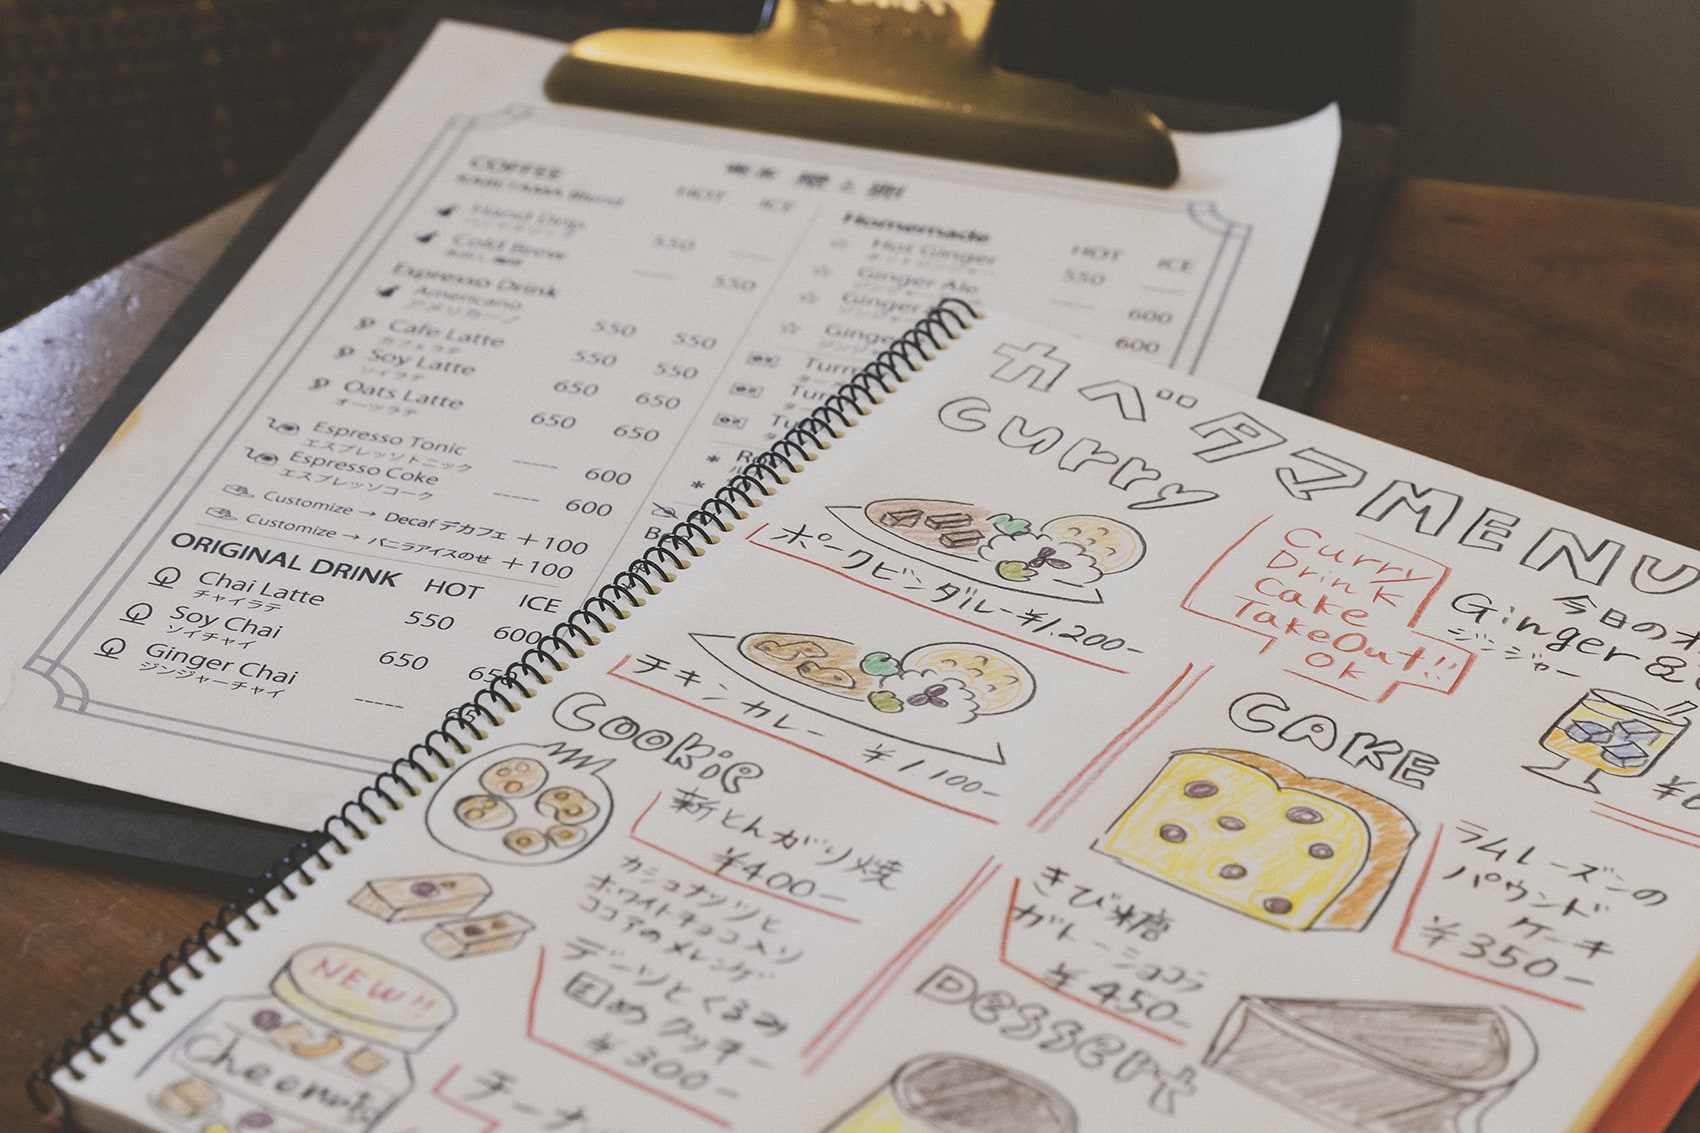 COFFEE
HOT ICE
KABETAMA Blend
Hand Drip 550 -----
Cold Brew ----- 550
Espresso Drink
Americano 550 550
アメリカーノ
Cafe Latte 550 550
カフェラテ
Soy Latte 650 650
ソイラテ
Oats Latte 650 650
オーツラテ
Espresso Tonic ----- 600
エスプレッソトニック
Espresso Coke ----- 600
エスプレッソコーク
Customize → Decaf デカフェ +100
Customize → バニラアイスのせ +100
ORIGINAL DRINK HOT ICE
Chai Latte 550 600
チャイラテ
Soy Chai 650
ソイチャイ
Ginger Chai -----
ジンジャーチャイ
Homemade HOT ICE
Hot Ginger 550 -----
Ginger Ale ----- 600
Ginger 600
カベタマMENU
Curry
ポークビンダルー ¥1,200-
チキンカレー ¥1,100-
Curry
Drink
Cake
TakeOut!!
OK
今日の
Ginger &
ジンジャー
Cookie
薪とんがり焼
¥400-
カシュナッツと
ホワイトチョコ入り
ココアのメレンゲ
デーツとくるみ
固めクッキー
¥300-
NEW!!
CAKE
ラムレーズンの
パウンド
ケーキ
¥350-
きび糖
ガトーショコラ
¥450-
Dessert